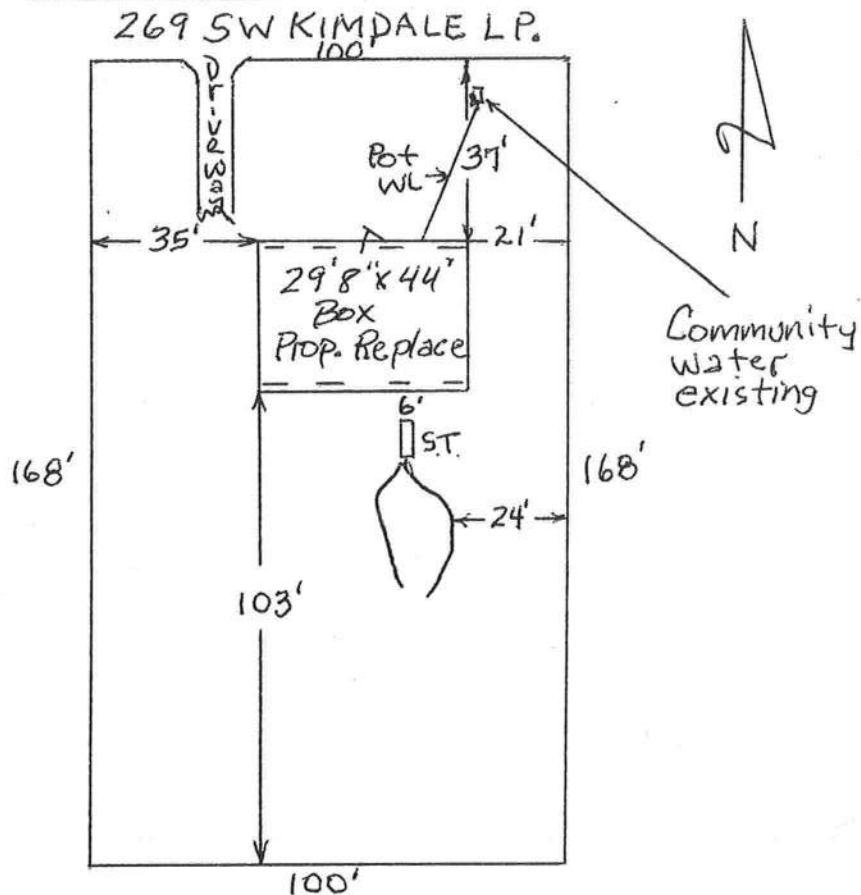 269 SW KIMDALE LP.
100'
Driveway
Pot
WL
37'
N
35'
21'
29'8"x44'
Box
Prop. Replace
Community
water
existing
6'
S.T.
168'
168'
24'
103'
100'